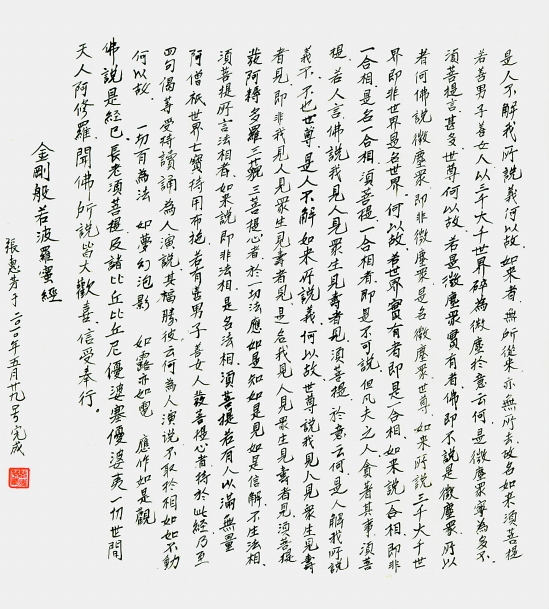 是人不解我所說義何以故如來者無所從來亦無所去故名如來須菩提
若善男子善女人以三千大千世界碎為微塵於意云何是微塵眾寧為多不
須菩提言甚多世尊何以故若是微塵眾實有者佛即不說是微塵眾所以
者何佛說微塵眾即非微塵眾是名微塵眾世尊如來所說三千大千世
界即非世界是名世界何以故若世界實有者即是一合相如來說一合相即非
一合相是名一合相須菩提一合相者即是不可說但凡夫之人貪著其事須菩
提若人言佛說我見人見眾生見壽者見須菩提於意云何是人解我所說
義不不也世尊是人不解如來所說義何以故世尊說我見人見眾生見壽
者見即非我見人見眾生見壽者見是名我見人見眾生見壽者見須菩提
發阿耨多羅三藐三菩提心者於一切法應如是知如是見如是信解不生法相
須菩提所言法相者如來說即非法相是名法相須菩提若有人以滿無量
阿僧祇世界七寶持用布施若有善男子善女人發菩提心者持於此經乃至
四句偈等受持讀誦為人演說其福勝彼云何為人演說不取於相如如不動
何以故 一切有為法 如夢幻泡影 如露亦如電 應作如是觀
佛說是經已長老須菩提及諸比丘比丘尼優婆塞優婆夷一切世間
天人阿修羅聞佛所說皆大歡喜信受奉行。
金剛般若波羅蜜經
張惠芳于二〇一〇年五月廿九号完成